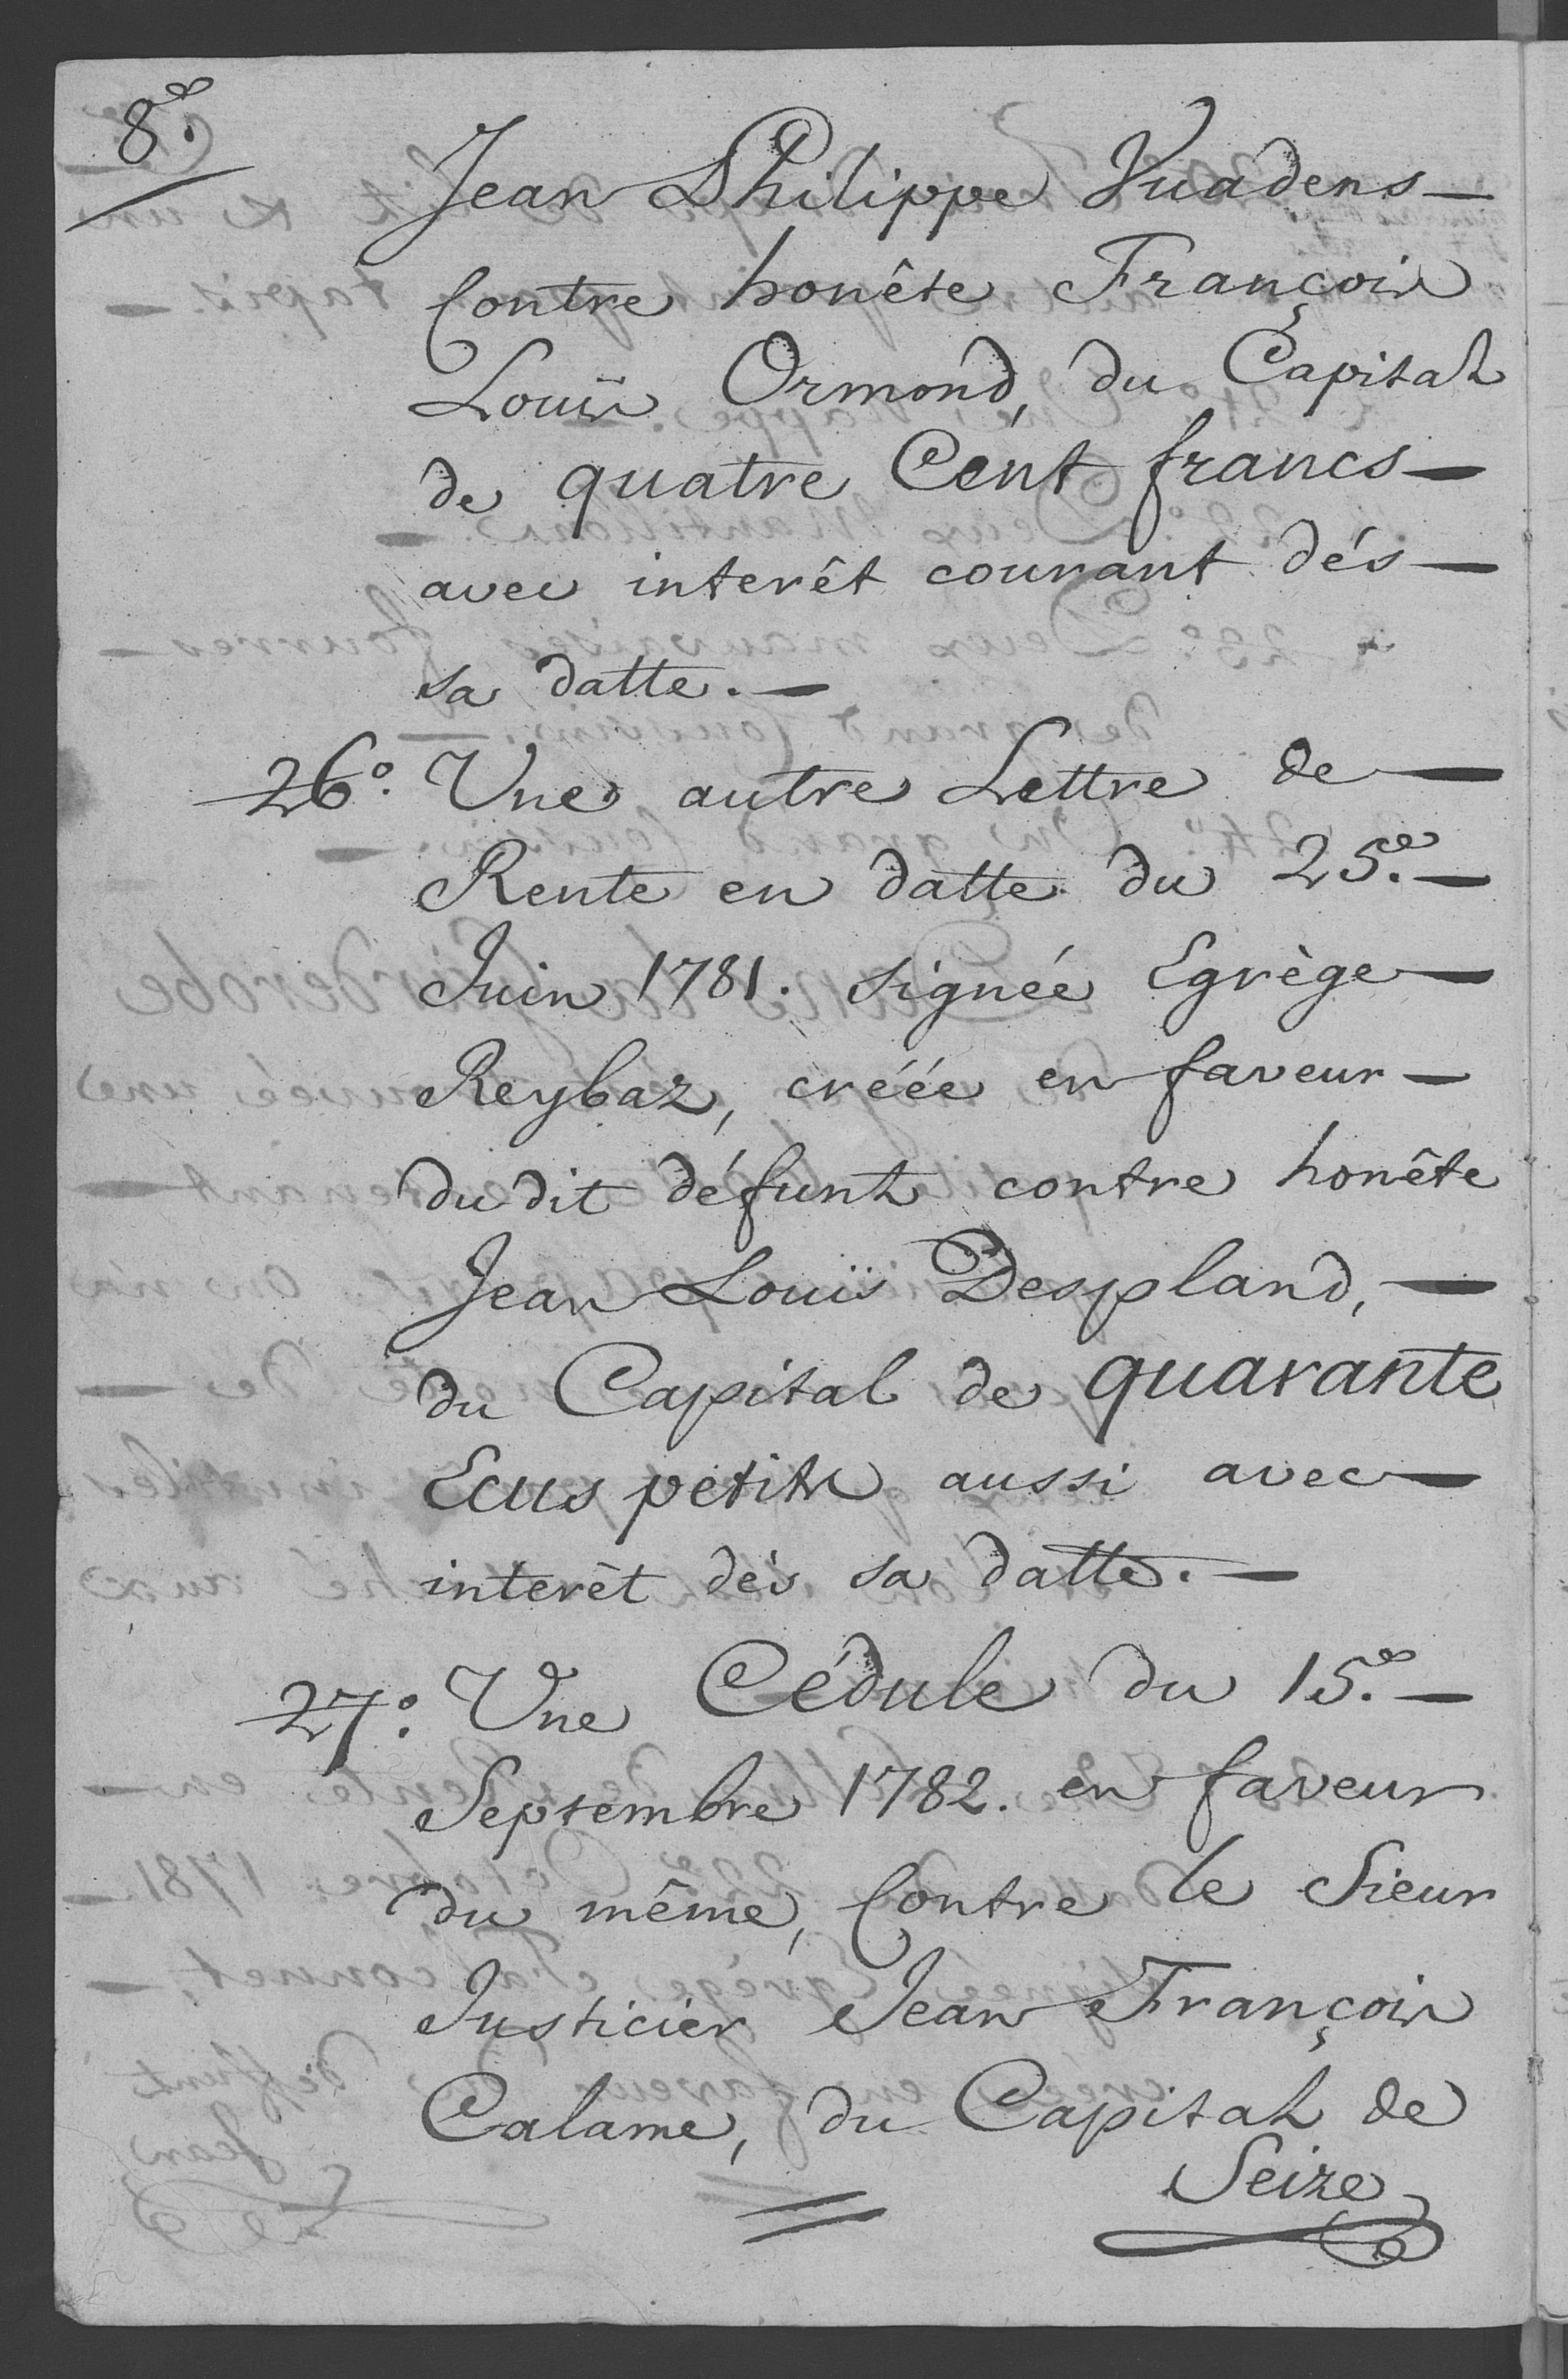 8.e
Jean Philippe Vuadens —
Contre honête François
Louïs Ormond, du Capital
de quatre Cent francs —
avec interêt courant dés —
sa datte. —
26.° Une autre Lettre de —
Rente en datte du 25.e —
Juin 1781. signée Egrège —
Reybaz, créée en faveur —
du dit défunt contre honête
Jean Louïs Despland, —
du Capital de quarante
Ecus petits aussi avec —
interêt dés sa datte. —
27.° Une Cédule du 15.e —
Septembre 1782. en faveur
du même, Contre le Sieur
Justicier Jean François
Calame, du Capital de
Seize